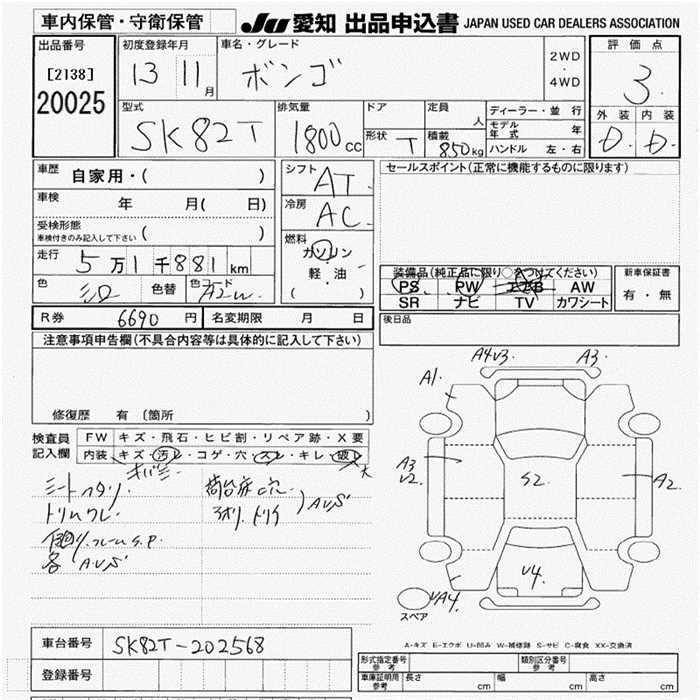 車内保管・守衛保管
JU 愛知 出品申込書 JAPAN USED CAR DEALERS ASSOCIATION
出品番号
[2138]
20025
初度登録年月
13 11 月
車名・グレード
ボンゴ
2WD
・
4WD
評価点
3.
外装 内装
D. D.
型式
SK82T
排気量
1800 cc
ドア
形状 T
定員
人
積載
850 kg
ディーラー・並行
モデル年式 年
ハンドル 左・右
車歴
自家用・( )
車検
年 月( 日)
受検形態
車検付きのみ記入して下さい ( )
走行
5 万 1 千 881 km
色
シロ
色替
色コード
シフト
AT.
冷房
AC.
燃料
ガソリン
軽・油
( )
セールスポイント(正常に機能するものに限ります)
装備品(純正品に限り○をつけてください)
PS PW エアB AW
SR ナビ TV カワシート
新車保証書
有・無
R券 6690 円 名変期限 月 日
後日品
注意事項申告欄(不具合内容等は具体的に記入して下さい)
修復歴 有 〔箇所 〕
検査員
記入欄
FW キズ・飛石・ヒビ割・リペア跡・X要
内装 キズ・汚レ・コゲ・穴・スレ・キレ・破レ
大
シートヘタリ.
トリムワレ.
フレームS.P.
各 AUS
AUS
A4V3.
A3.
A1.
A3
U2.
S2.
A2.
V4.
VA4.
スペア
A-キズ E-エクボ U-凹み W-補修跡 S-サビ C-腐食 XX-交換済
車台番号 SK82T-202568
登録番号
形式指定番号
参考
類別区分番号
参考
車庫証明用
参考
長さ cm 幅 cm 高さ cm